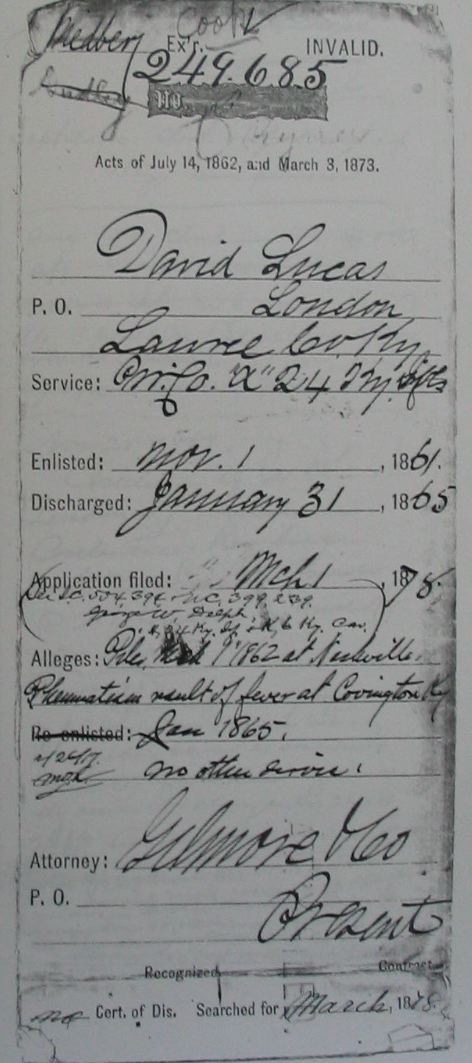 Medbery Ex'r. Cook INVALID.
249.685
No.
Acts of July 14, 1862, and March 3, 1873.
David Lucas
P. O. London
Laurel Co Ky.
Service: Co. "A" 24 Ky.
Enlisted: Nov. 1, 1861.
Discharged: January 31, 1865
Application filed: Mch 1, 1878.
C. 504,394 C. 399,239.
George W.
Ky. Cav.
Alleges: Piles, 1862 at Nashville
Rheumatism result of fever at Covington Ky
Re-enlisted: Jan 1865.
no other service.
Attorney: Gilmore & Co
P. O.
Present
Recognized Contract
no Cert. of Dis. Searched for March, 1878.